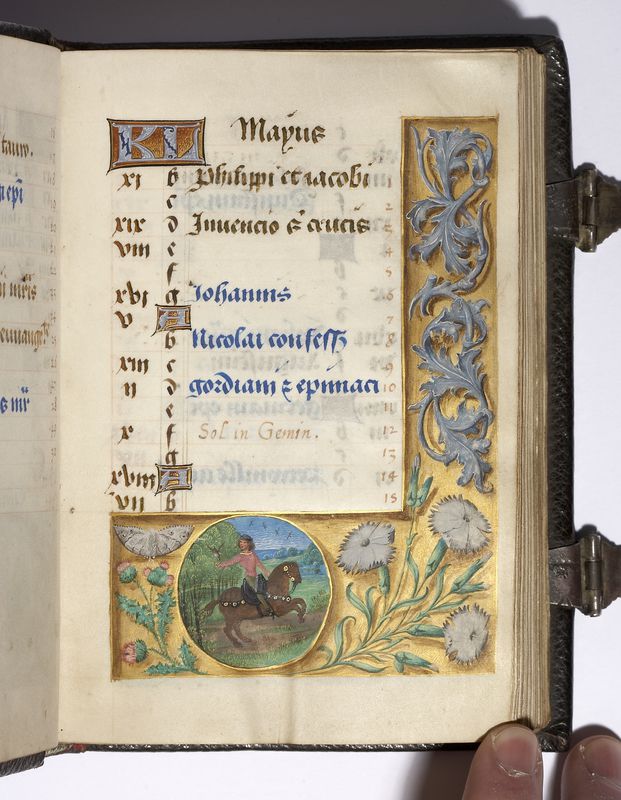 KL Mayus
xi b Philippi et iacobi 1
c 2
xix d Inuencio s crucis 3
viii e 4
f 5
xvi g Iohannis 6
v A 7
b Nicolai confess 8
xiii c 9
ii d gordiani z epimaci 10
e 11
x f Sol in Gemin. 12
g 13
xviii A 14
vii b 15